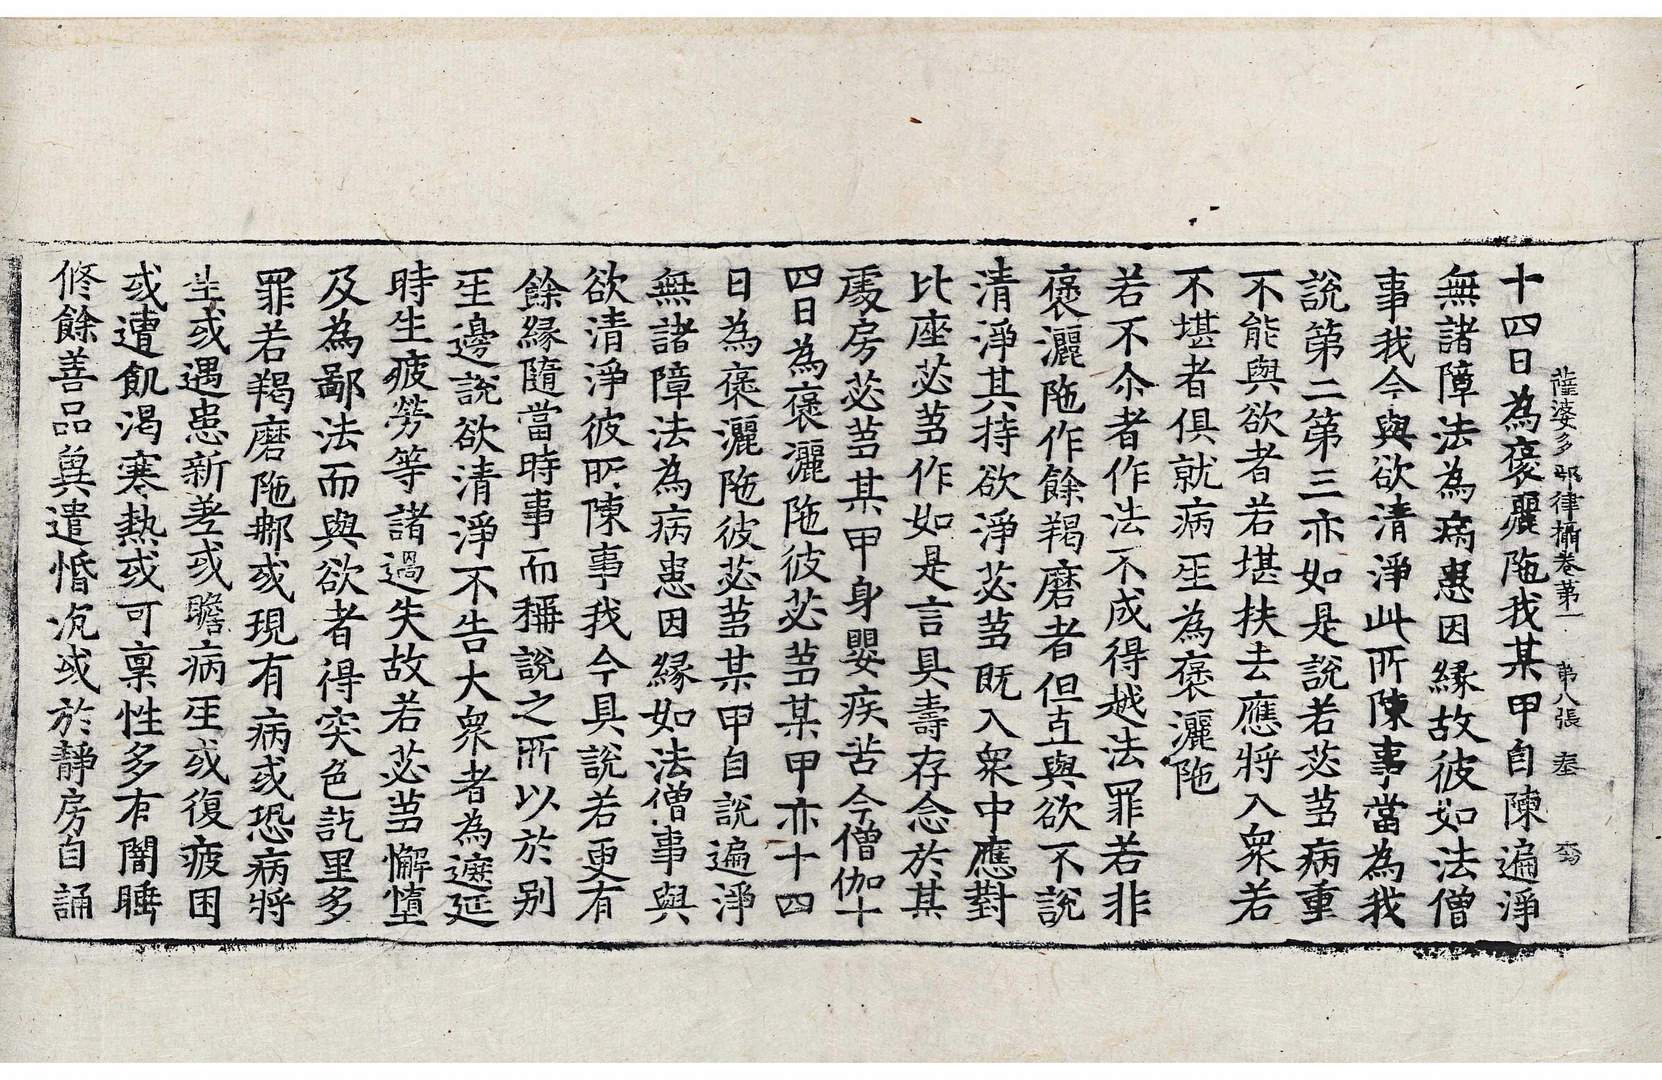 薩婆多部律攝卷第一　第八張　奉
十四日為褒灑陁我某甲自陳遍淨
無諸障法為病患因緣故彼如法僧
事我今與欲清淨此所陳事當為我
說第二第三亦如是說若苾芻病重
不能與欲者若堪扶去應將入衆若
不堪者俱就病𠩄為褒灑陁
若不尒者作法不成得越法罪若非
褒灑陁作餘羯磨者但直與欲不說
清淨其持欲淨苾芻既入衆中應對
比座苾芻作如是言具壽存念於某
處房苾芻某甲身嬰疾苦今僧伽十
四日為褒灑陁彼苾芻某甲亦十四
日為褒灑陁彼苾芻某甲自說遍淨
無諸障法為病患因緣如法僧事與
欲清淨彼所陳事我今具說若更有
餘緣隨當時事而稱說之所以於別
人邊說欲清淨不告大衆者為遮延
時生疲勞等諸過失故若苾芻懈墮
及為鄙法而與欲者得突色訖里多
罪若羯磨陁那或現有病或恐病將
生或遇患新差或瞻病人或復疲困
或遭飢渴寒熱或可稟性多有闇睡
修餘善品兾遣惛沉或於靜房自誦